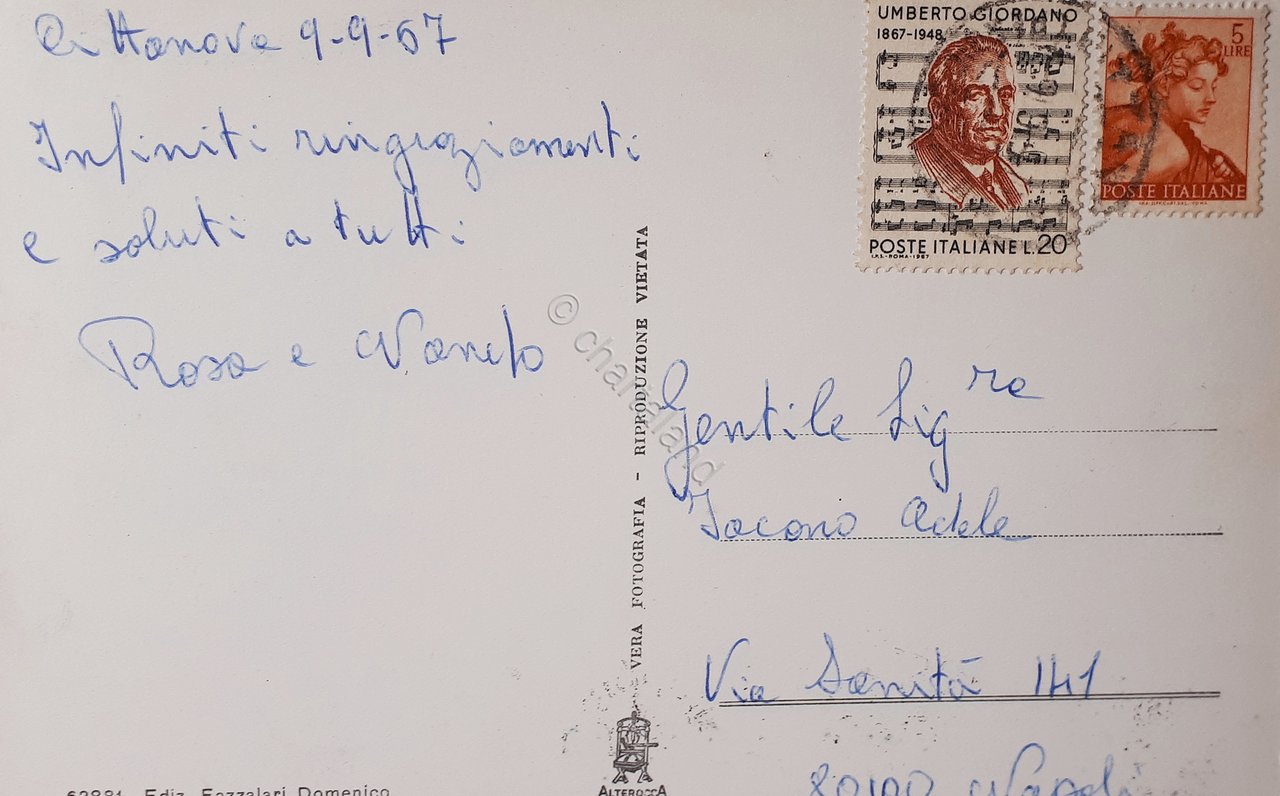 Cittanova 9-9-67
Infiniti ringraziamenti
e saluti a tutti
Rosa e
UMBERTO GIORDANO
1867-1948
POSTE ITALIANE L.20
I.P.S.-ROMA-1967
5
LIRE
POSTE ITALIANE
VERA FOTOGRAFIA - RIPRODUZIONE VIETATA
© chartaland
Gentile Sig.ra
Iacono Adele
Via Sanità 141
80100 Napoli
62881 Ediz. Fazzalari Domenico
ALTEROCCA